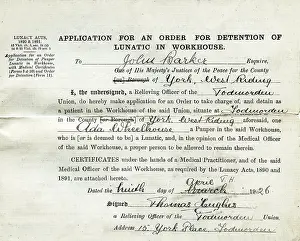 LUNACY ACTS,
1890 & 1891.
Application for an
Order for Detention
of Lunatic in
Workhouse,
APPLICATION FOR AN ORDER FOR DETENTION OF
LUNATIC IN WORKHOUSE.
To John Barker Esquire,
One of His Majesty's Justices of the Peace for the County
[or Borough] of York, West Riding
I, the undersigned, a Relieving Officer of the Todmorden
Union, do hereby make application for an Order to take charge of, and detain as
a patient in the Workhouse of the said Union, situate at Todmorden
in the County [or Borough] of York West Riding aforesaid, one
Ada Wheelhouse a Pauper in the said Workhouse,
who is [or is deemed to be] a Lunatic, and, in the opinion of the Medical Officer
of the said Workhouse, a proper person to be allowed to remain therein.
CERTIFICATES under the hands of a Medical Practitioner, and of the said
Medical Officer of the said Workhouse, as required by the Lunacy Acts, 1890 and
1891, are attached hereto.
April
Dated the ninth day of March 1926
Signed Thomas Hughes
a Relieving Officer of the Todmorden Union.
Address 15 York Place Todmorden